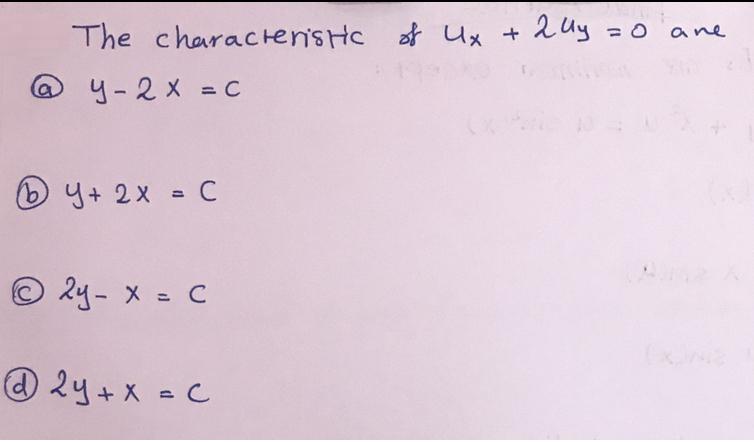 The characteristic of Ux + 2Uy = 0 are
(a) y - 2x = C
(b) y + 2x = C
(c) 2y - x = C
(d) 2y + x = C